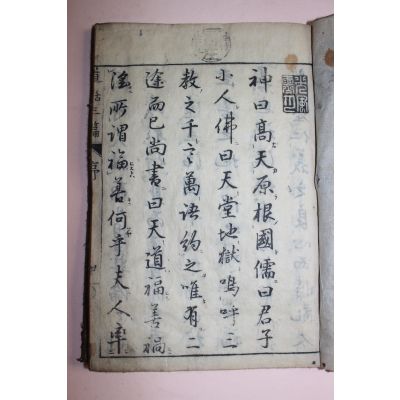 神曰高天原根國儒曰君子
小人佛曰天堂地獄嗚呼三
教之千言萬語約之唯有二
途而已尚書曰天道福善禍
淫所謂福善何乎夫人率
三篇 序